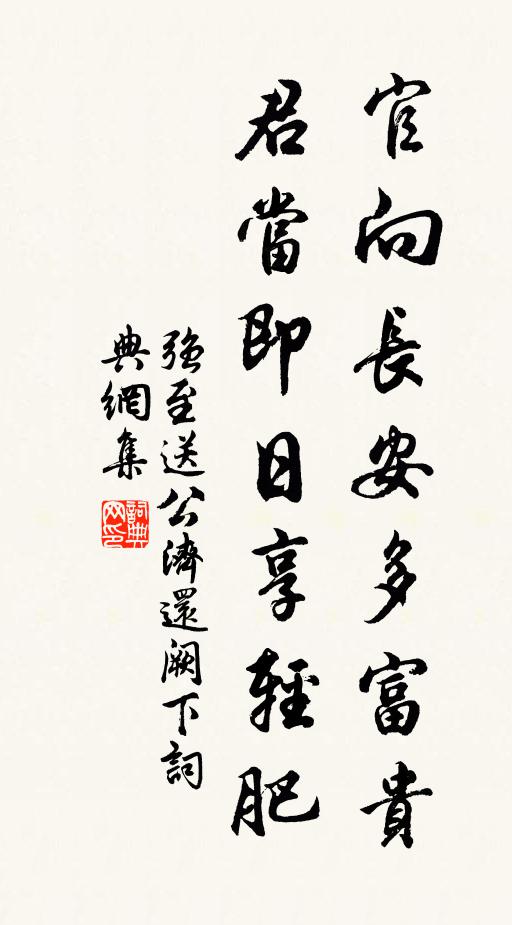 官向長安多富貴
君當即日享輕肥
強至送公濟還闕下詞
典網集
詞典網印